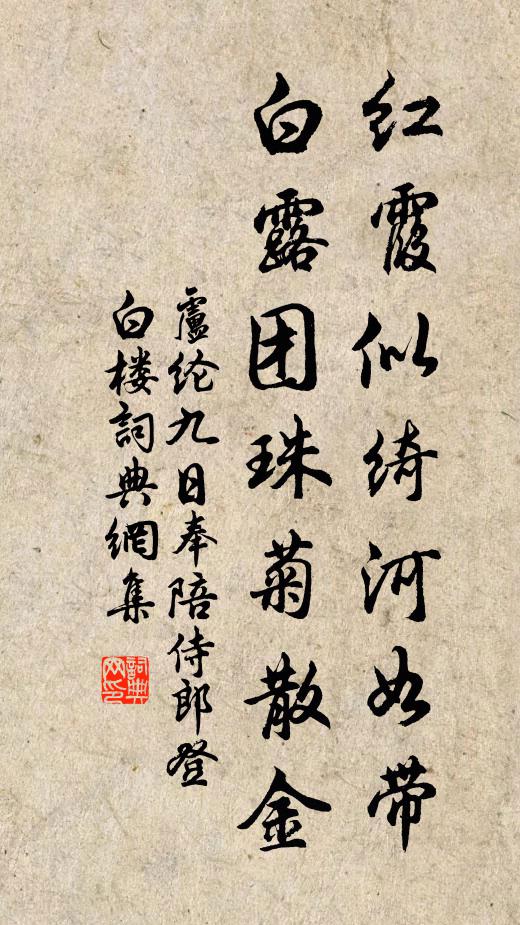 红霞似绮河如带
白露团珠菊散金
盧纶九日奉陪侍郎登
白楼詞典網集
詞典網印